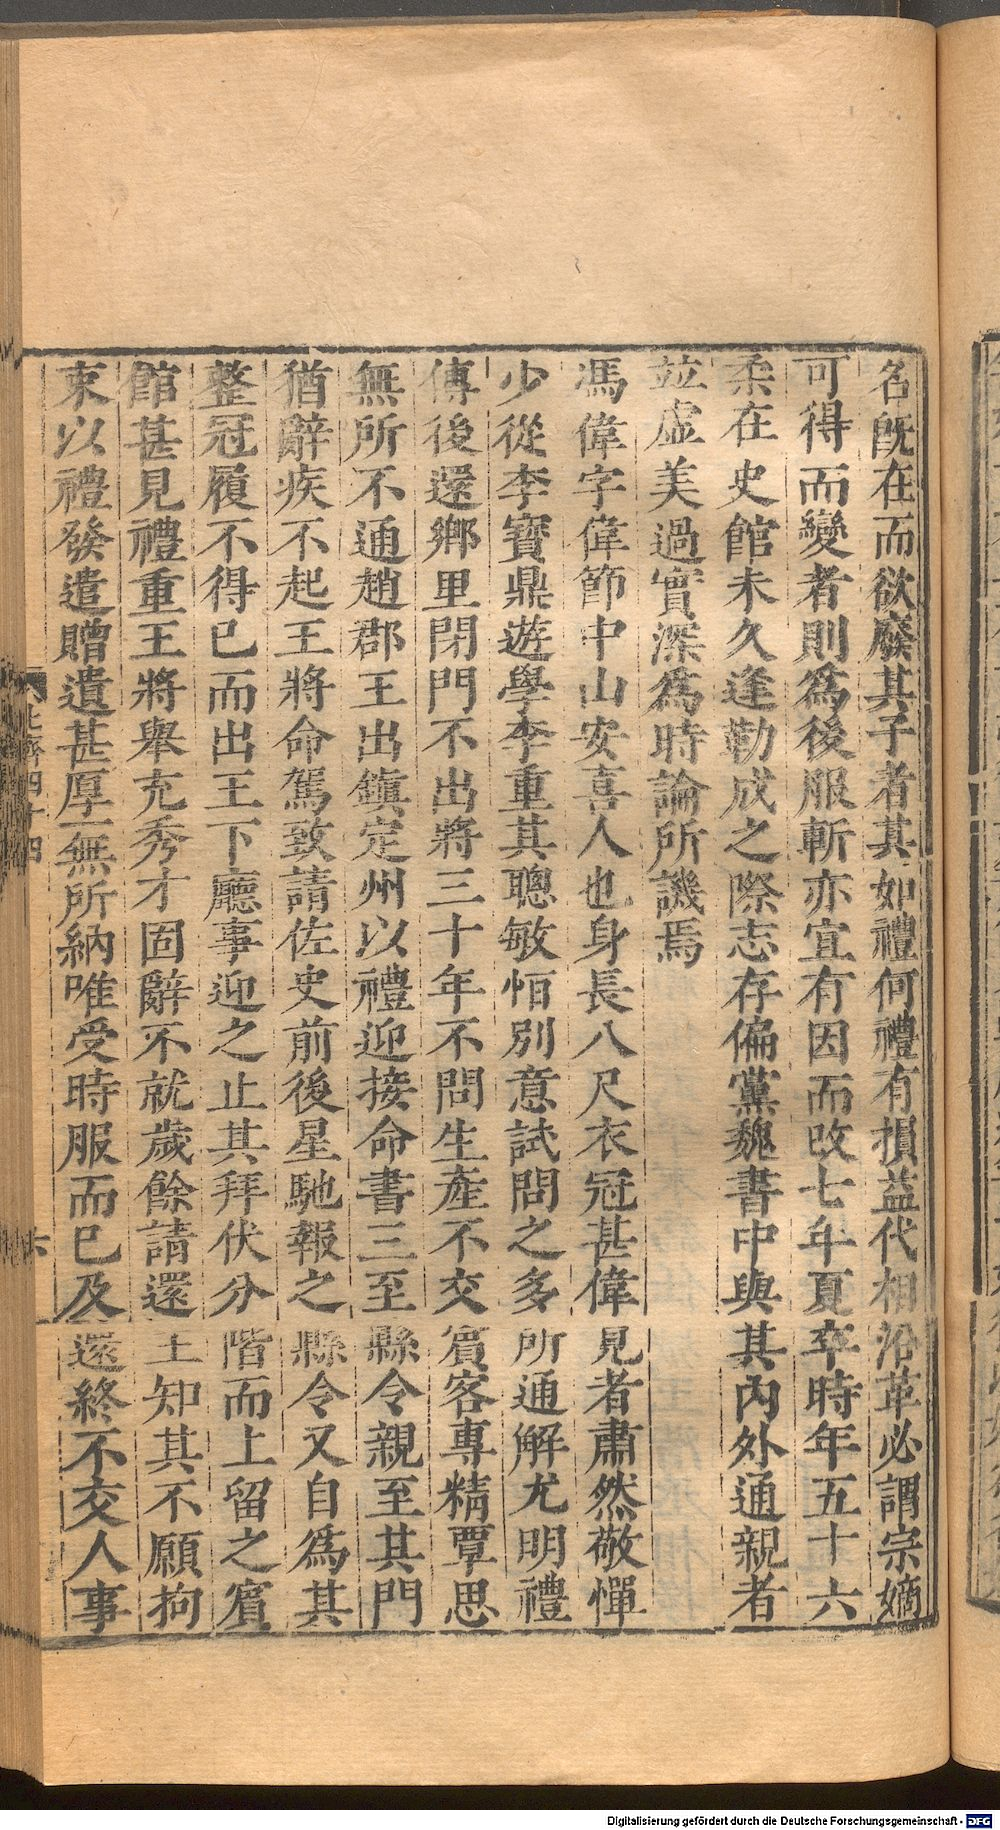 名旣在而欲廢其子者其如禮何禮有損益代相沿革必謂宗嫡
可得而變者則爲後服斬亦宜有因而改七年夏卒時年五十六
柔在史館未久逢勒成之際志存偏黨魏書中與其內外通親者
並虛美過實深爲時論所譏焉
馮偉字偉節中山安喜人也身長八尺衣冠甚偉見者肅然敬憚
少從李寶鼎遊學李重其聰敏恒別意試問之多所通解尤明禮
傳後還鄉里閉門不出將三十年不問生產不交賓客專精覃思
無所不通趙郡王出鎭定州以禮迎接命書三至縣令親至其門
猶辭疾不起王將命駕致請佐史前後星馳報之縣令又自爲其
整冠履不得已而出王下廳事迎之止其拜伏分階而上留之賓
館甚見禮重王將舉充秀才固辭不就歲餘請還王知其不願拘
束以禮發遣贈遺甚厚一無所納唯受時服而已及還終不交人事
北齊四十四
六
Digitalisierung gefördert durch die Deutsche Forschungsgemeinschaft - DFG